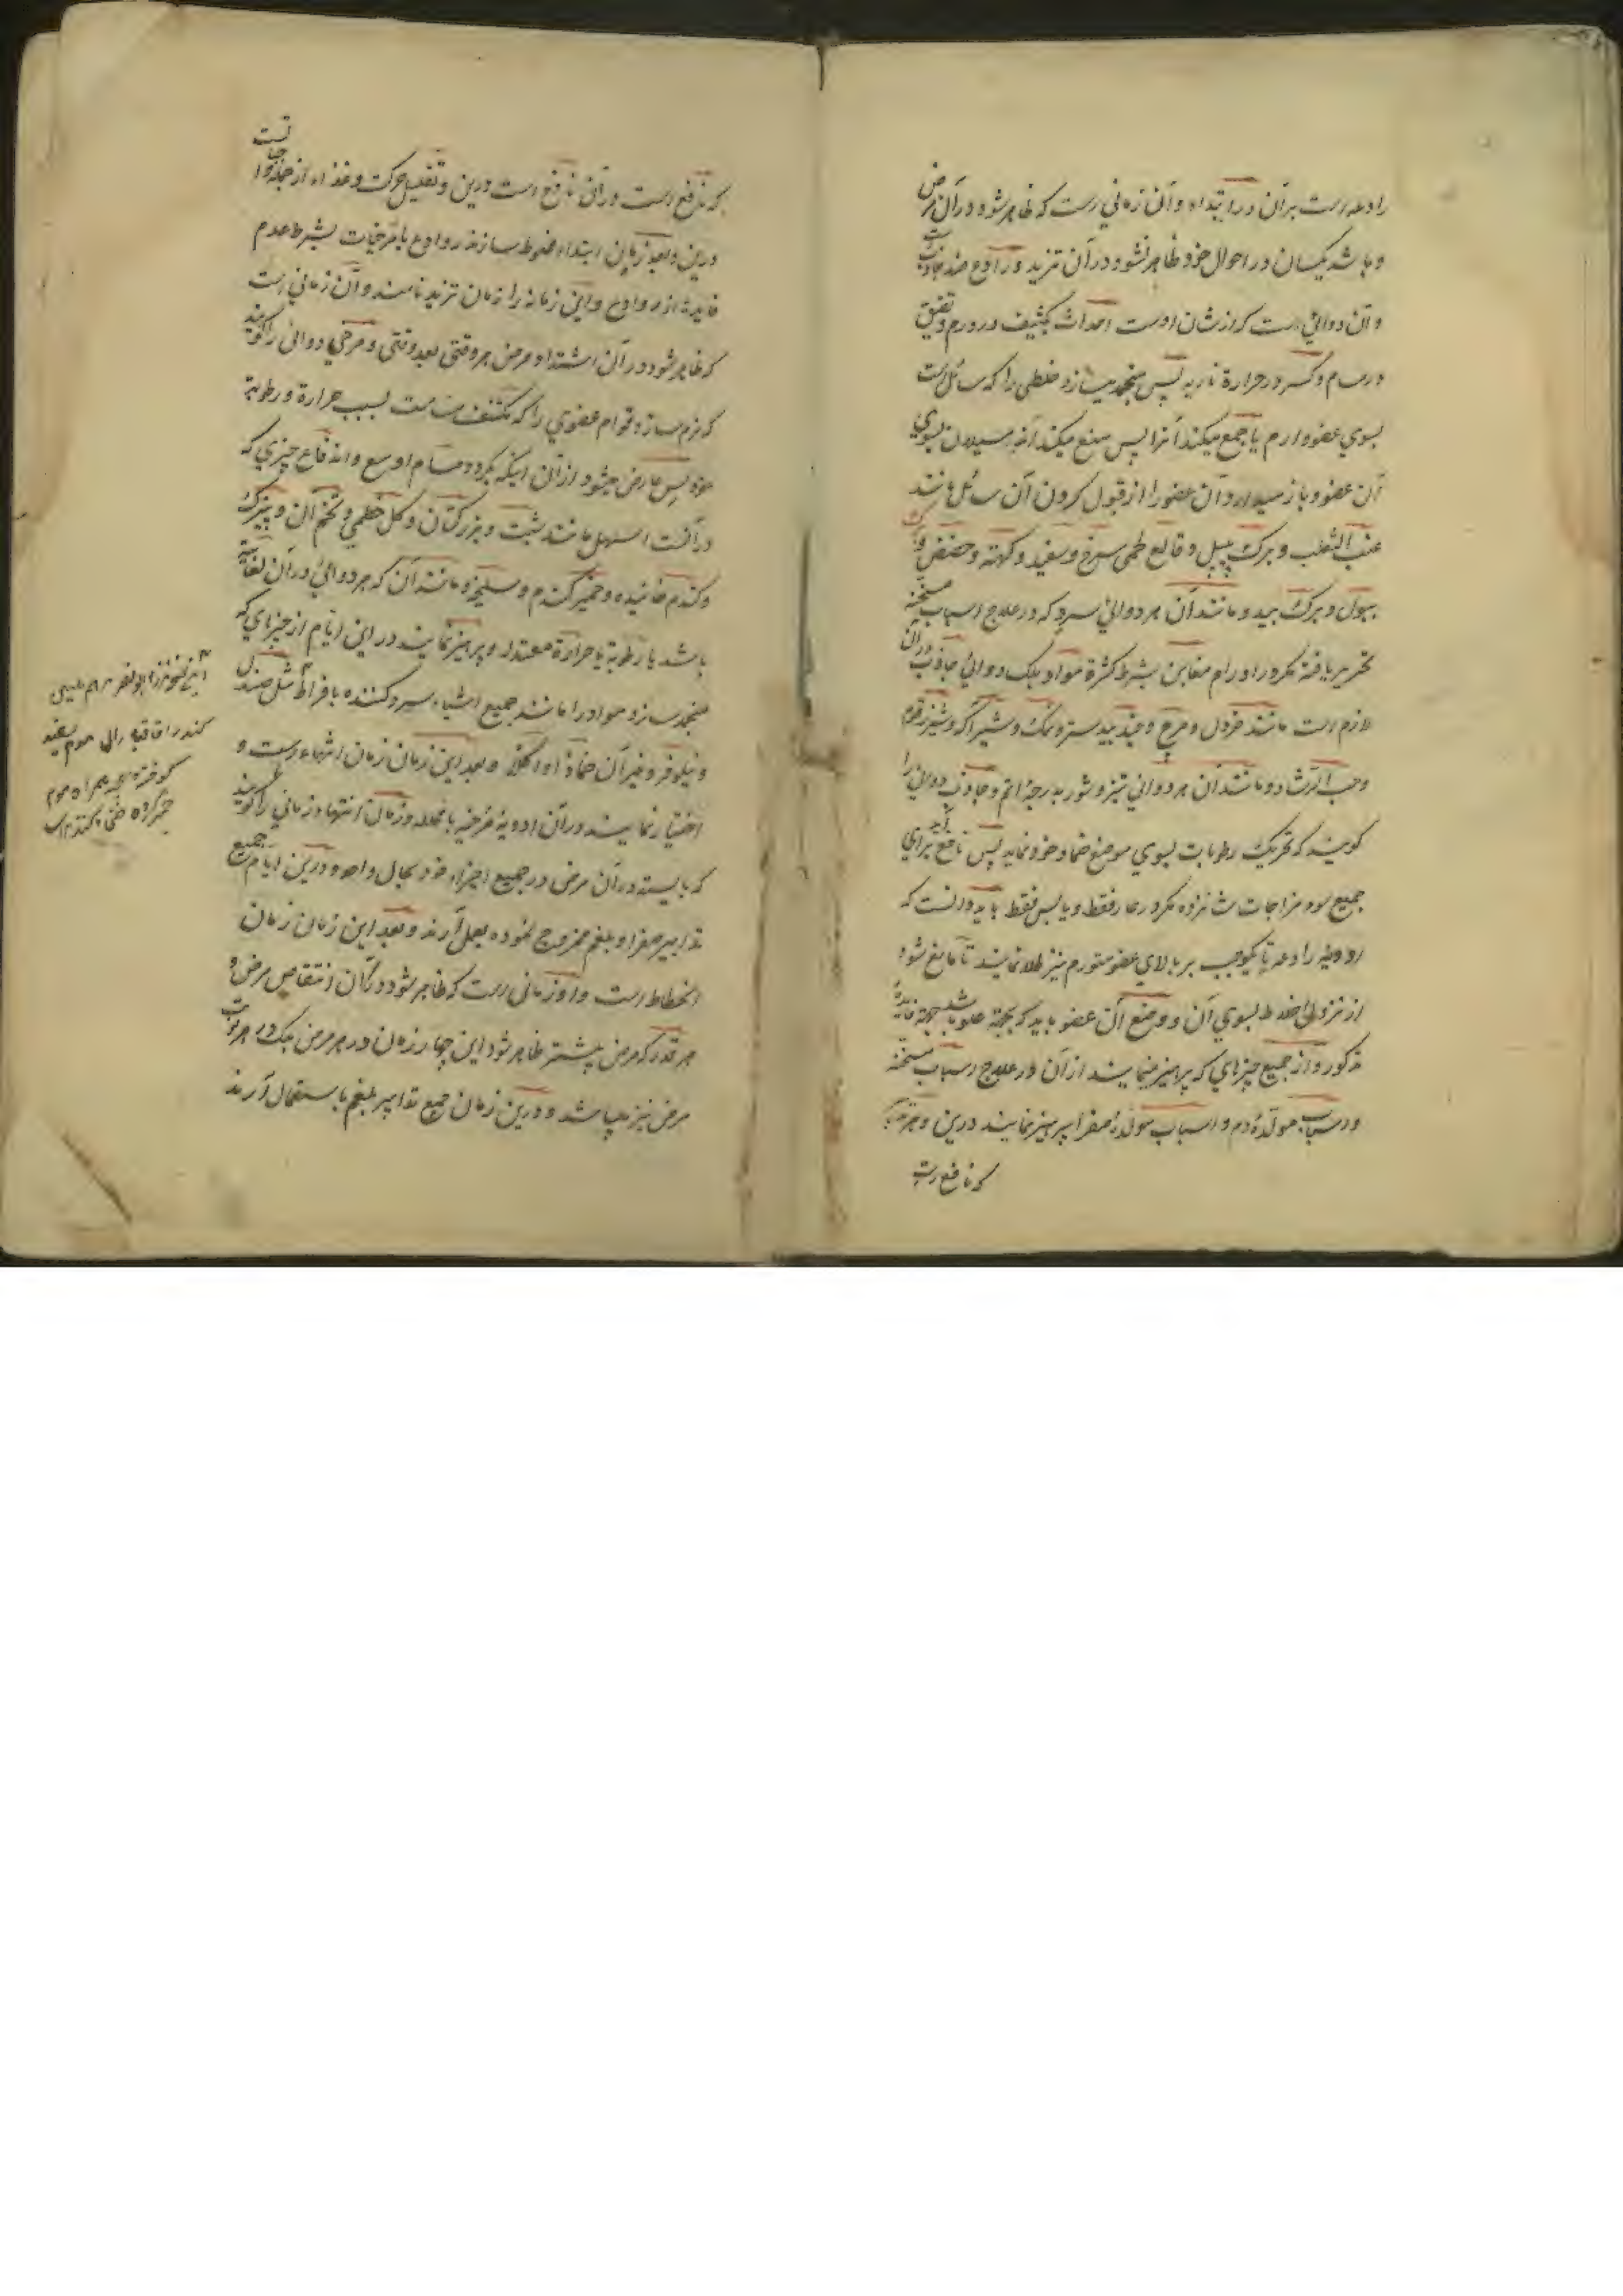 رادعه است بر آن در ابتداء و آن زمانی است که ظاهر شود در آن مرض
و باشد یکسان در احوال خود ظاهر نشود در آن تزید و رادع ضد جاذب است
و آن دوائی است که از شان اوست احداث تکثیف در ورم و تضیق
در مسام و کسر در حرارة ناریه پس منجمد میسازد خلطی را که سائل است
بسوی عضو وارم یا جمع میکند آنرا پس منع میکند آنرا سیلان بسوی
آن عضو و باز میدارد آن عضو را از قبول کردن آن سائل مانند
عنب الثعلب و برک پیپل و قالع طمی سرخ و سفید و کهته و حضض و برک
ببول و برک بید و مانند آن هر دوائی سرد که در علاج اسباب مسخنه
تحریر یافته مکر در اورام مغابن بشرط کثرة مواد بلکه دوائی جاذب در آن
لازم است مانند خردل و مرچ و جند بیدستر و نمک و شیر آک و شیر زقوم
و حب الرشاد و مانند آن هر دوائی تیز و شور بدرجهٔ اتم و جاذب دوائی را
کویند که تحریک رطوبات بسوی موضع ضماد خود نماید پس نافع آید برای
جمیع سوء مزاجات شانزده مکر در حار فقط و یابس فقط باید دانست که
ادویه رادعه تا یکوجب بر بالای عضو متورم نیز طلا نمایند تا مانع شود
از نزول اخلاط بسوی آن و وضع آن عضو باید که بجهة علو باشد بجهة فایدهٔ
مذکور و از جمیع چیزهای که پرهیز مینمایند از آن در علاج اسباب مسخنه
و اسباب مولدهٔ دم و اسباب مولدهٔ صفرا پرهیز نمایند درین و هرچه
که نافع است
که نافع است در آن نافع است درین و تقلیل حرکت و غذاء از جمله واجبات است
درین و بعد زمان ابتداء مخلوط سازند روادع با مرخیات بشرط عدم
فایده از روادع و این زمانه را زمان تزید نامند و آن زمانی است
که ظاهر شود در آن اشتداد مرض هر وقتی بعد وقتی و مرخی دوائی را کویند
که نرم سازد قوام عضوی را که متکثف است بسبب حرارة و رطوبة
خود پس عارض میشود از آن اینکه بکردد مسام اوسع و اندفاع چیزی که
در آنست اسهل مانند شبت و بزر کتان و کل خطمی و تخم آن و پنیرک
و کندم خائیده و خمیر کندم و سلیخه و مانند آن که هر دوائی در آن لعابیة
باشد با رطوبة یا حرارة معتدله و پرهیز نمایند در این ایام از چیزهای که
منجمد سازد مواد را مانند جمیع اشیاء سرد کننده بافراط مثل صندل
و نیلوفر و غیر آن ضماداً و اکلاً و بعد این زمان زمان انتهاء است و
اختیار نمایند در آن ادویهٔ مرخیه با محلله و زمان انتها زمانی را کویند
که بایستد در آن مرض در جمیع اجزاء خود بحال واحد و درین ایام جمیع
تدابیر صفرا و بلغم ممزوج نموده بعمل آرند و بعد این زمان زمان
انحطاط است و او زمانی است که ظاهر شود در آن انتقاص مرض و
هر قدر که مرض بیشتر ظاهر شود این چهار زمان در هر مرض بلکه در هر نوبت
مرض نیز میباشد و درین زمان جمیع تدابیر بلغم باستعمال آرند
کوفته همراه موم